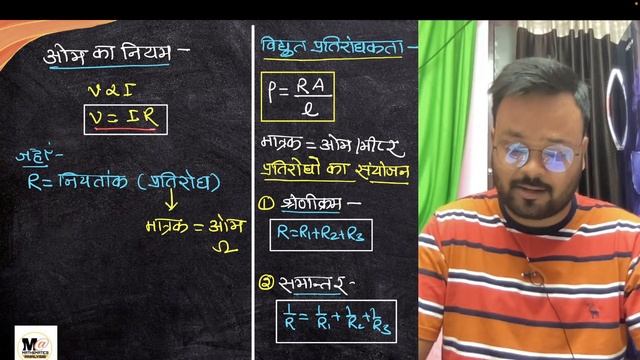 ओम का नियम -
V α I
V = IR
जहाँ -
R = नियतांक (प्रतिरोध)
मात्रक = ओम
Ω
विद्युत प्रतिरोधकता -
ρ = RA/l
मात्रक = ओम/मीटर
प्रतिरोधों का संयोजन
① श्रेणीक्रम -
R = R₁ + R₂ + R₃
② समान्तर -
1/R = 1/R₁ + 1/R₂ + 1/R₃
Ma
MATHEMATICS
ANALYSIS